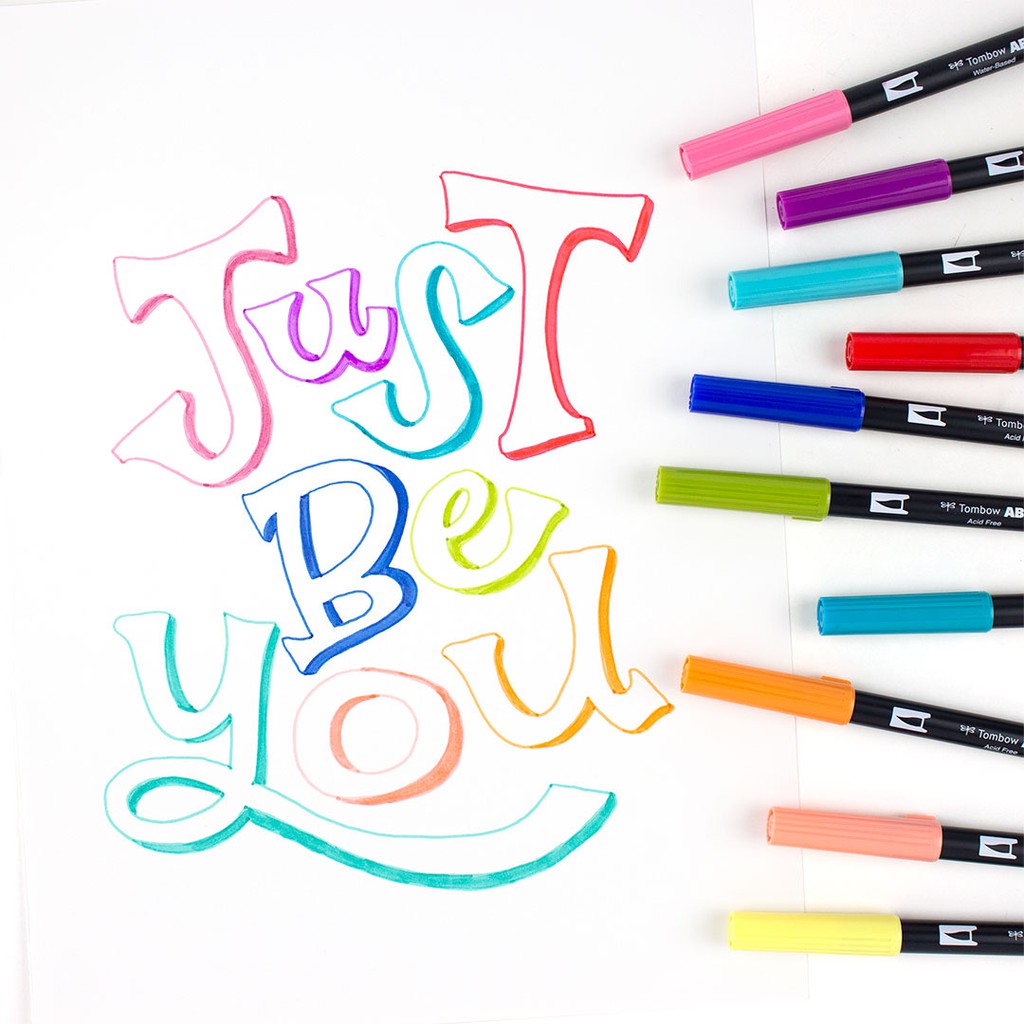 JusT
Be
you
Tombow AB
Water-Based
Tombo
Acid F
Tombow AB
Acid Free
Tombow
Acid Free